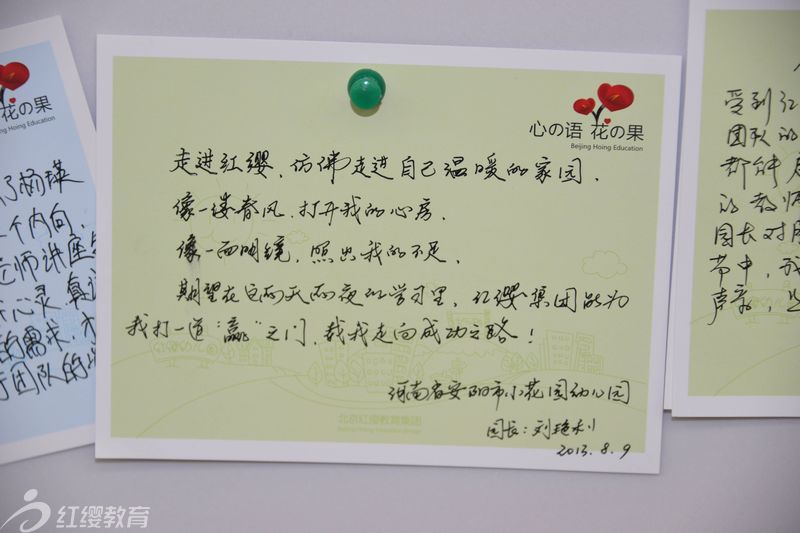 心の语 花の果
Beijing Hoing Education
走进红缨，仿佛走进自己温暖的家园，
像一缕春风，打开我的心房，
像一面明镜，照出我的不足，
期望在这两天两夜的学习里，红缨集团能为
我打一道“赢”之门，载我走向成功之路！
河南省安阳市小花园幼儿园
园长：刘艳利
2013.8.9
北京红缨教育集团
花の果
Beijing Hoing Education
了杨瑛
个内向，
老师讲座
心灵，真
的需求，
团队的
受到红
团队的
都能
的教师
园长对
节中，我
声亲，
红缨教育